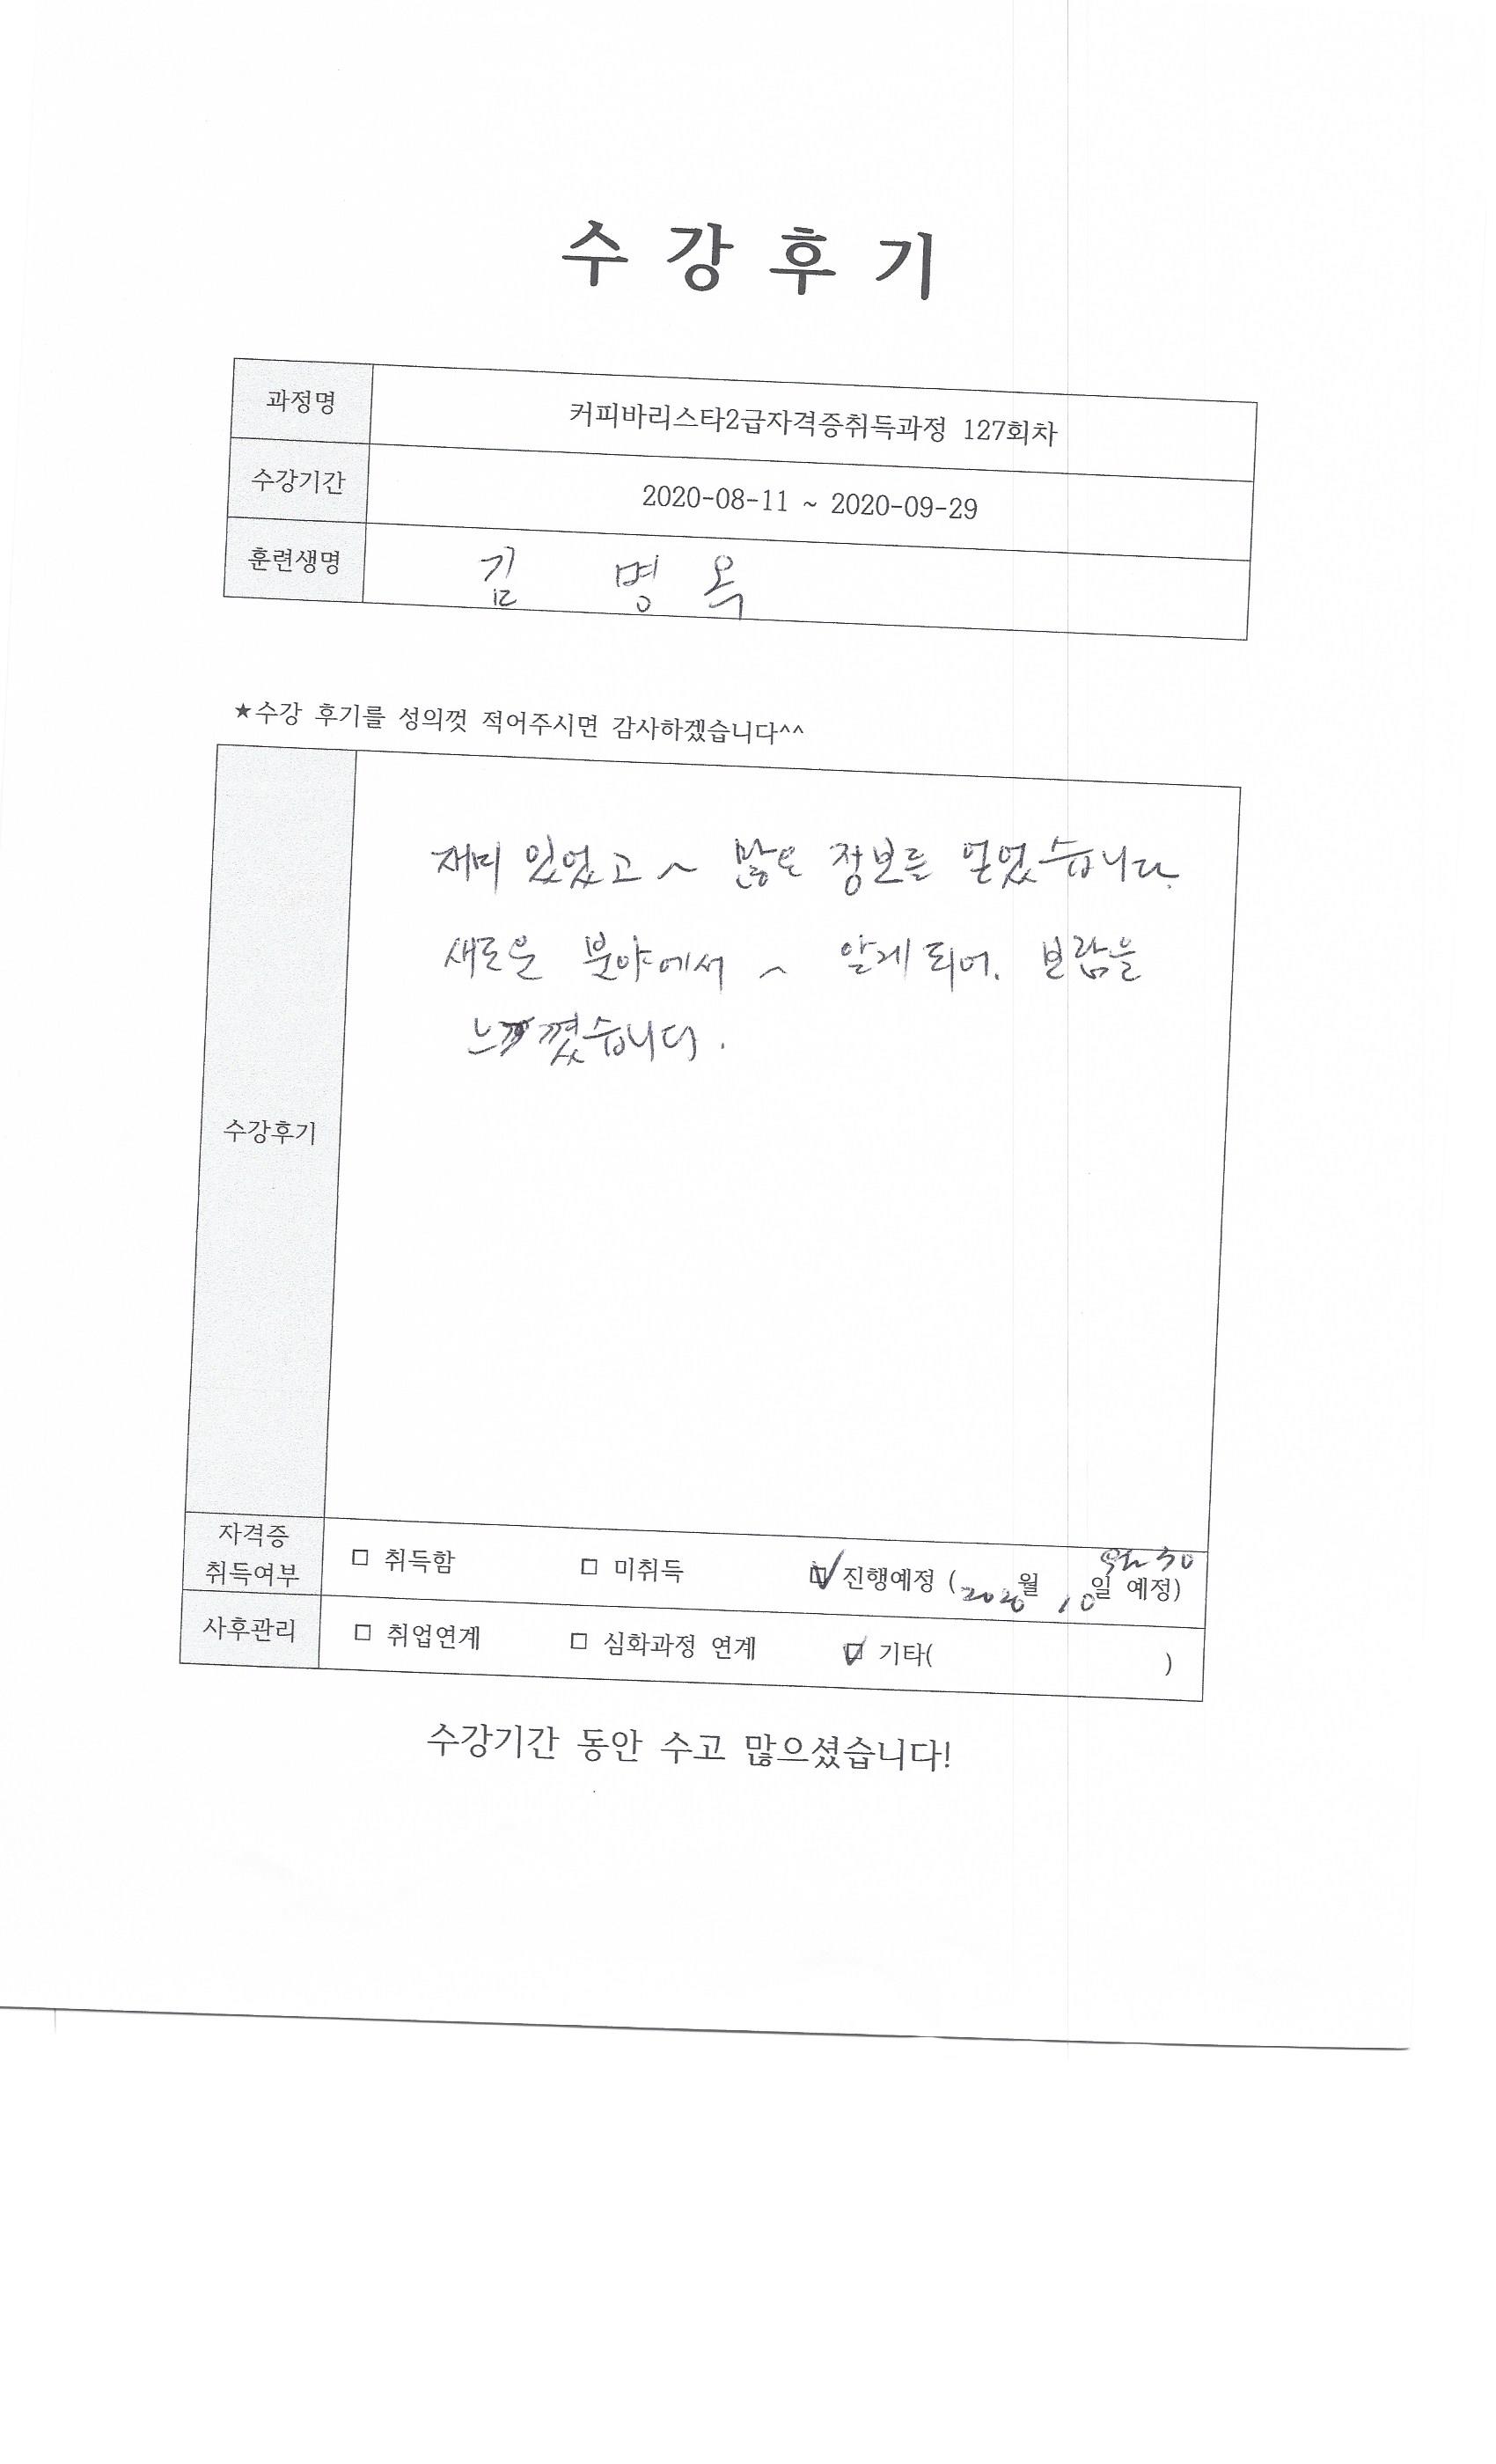 수 강 후 기
과정명 커피바리스타2급자격증취득과정 127회차
수강기간 2020-08-11 ~ 2020-09-29
훈련생명 김 명 옥
★수강 후기를 성의껏 적어주시면 감사하겠습니다^^
재미 있었고 ~ 많은 정보를 얻었습니다.
새로운 분야에서 ~ 알게 되어. 보람을
느꼈습니다.
수강후기
자격증
취득여부 □ 취득함 □ 미취득 ☑ 진행예정 (2020월 10일 예정)
월 30
사후관리 □ 취업연계 □ 심화과정 연계 ☑ 기타( )
수강기간 동안 수고 많으셨습니다!